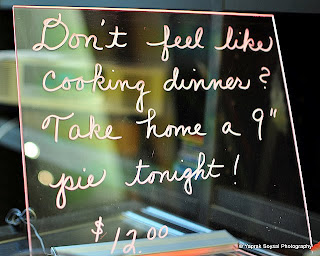 Don't feel like
cooking dinner?
Take home a 9"
pie tonight!
$12.00
© Yaprak Soysal Photography